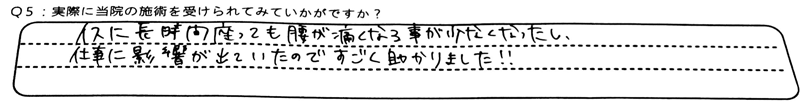 Q5：実際に当院の施術を受けられてみていかがですか？
イスに長時間座っても腰が痛くなる事が少なくなったし、
仕事に影響が出ていたのですごく助かりました!!